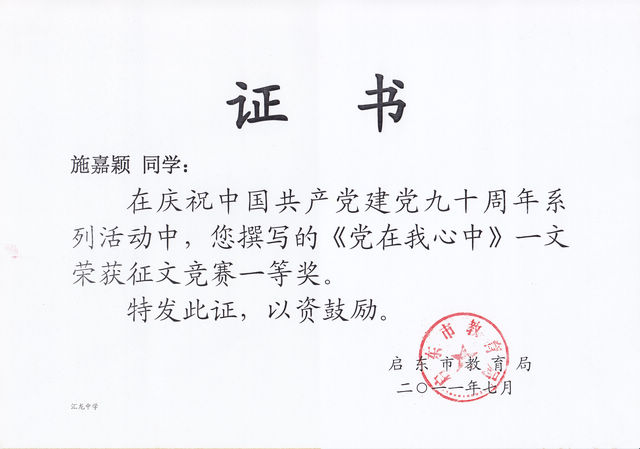 证 书
施嘉颖 同学：
在庆祝中国共产党建党九十周年系
列活动中，您撰写的《党在我心中》一文
荣获征文竞赛一等奖。
特发此证，以资鼓励。
启东市教育局
启东市教育局
二〇一一年七月
汇龙中学